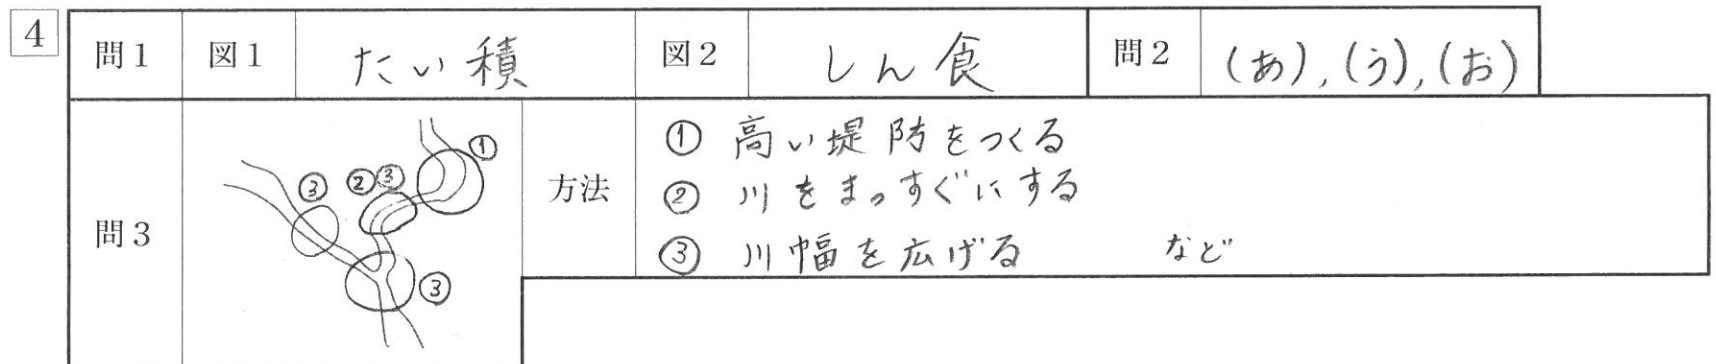 4
問1 図1 たい積 図2 しん食 問2 (あ),(う),(お)
問3
① ③ ②③ ③
方法
① 高い堤防をつくる
② 川をまっすぐにする
③ 川幅を広げる など